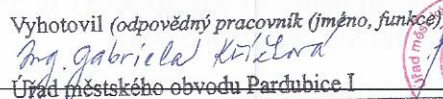 Vyhotovil (odpovědný pracovník (jméno, funkce)
Ing. Gabriela Křížová
Úřad městského obvodu Pardubice I
Úřad měs